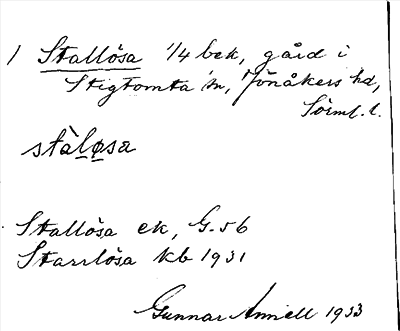 1 Stallösa 1/4 bek, gård i
Stigtomta sn, Jönåkers hd,
Sörml. l.
stàløsa
Stallösa ek, G. 56
Starrlösa kb 1931
Gunnar Amiell 1933